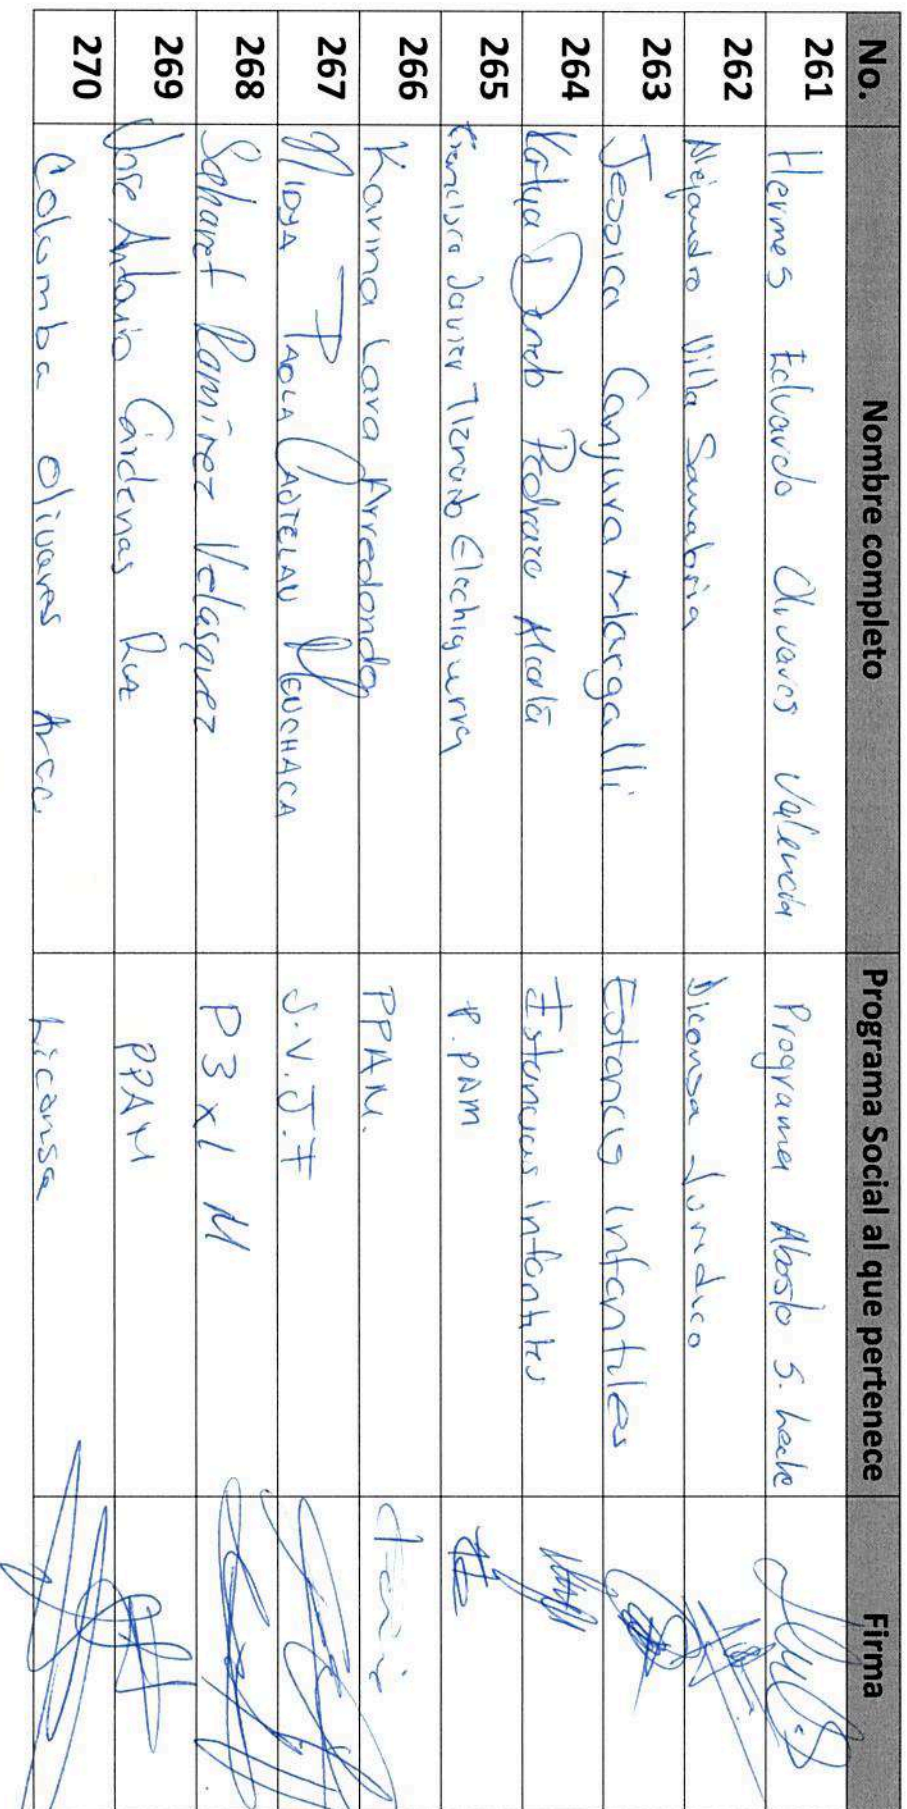 No. Nombre completo Programa Social al que pertenece Firma
261 Hermes Eduardo Olivares Valencia Programa Abasto S. Leche
262 Alejandro Villa Sanabria Diconsa Juridico
263 Jessica Canjura Margalli Estancias Infantiles
264 Pedraza Alcalá Estancias Infantiles
265 Francisco Javier Tiznado Elechiguerra P.PAM
266 Karina Lara Arredondo PPAM.
267 NIDYA PAOLA CASTELAN MENCHACA S.V.J.F
268 Saharet Ramírez Velasquez P3x1 M
269 Jose Antonio Cárdenas Ruiz PPAM
270 Columba Olivares Liconsa